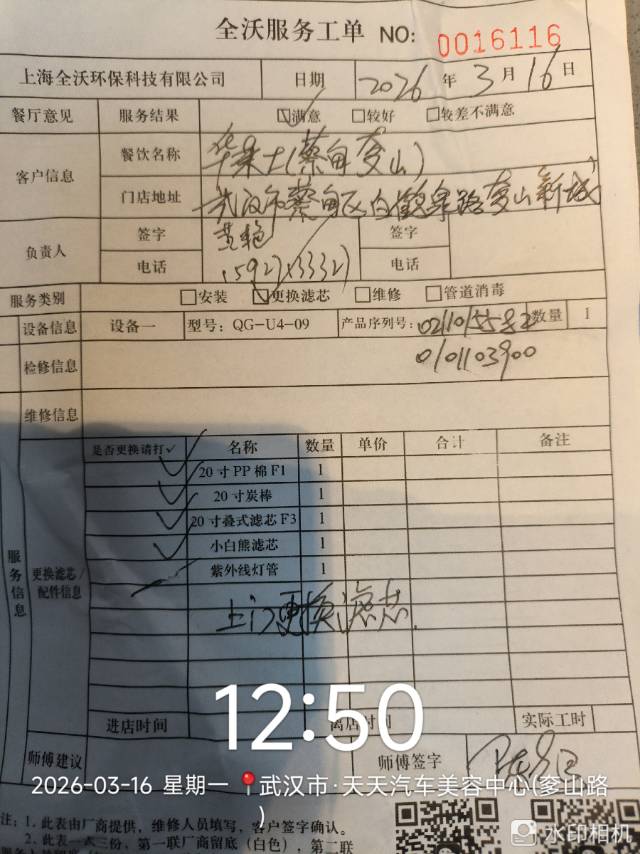 全沃服务工单 NO: 0016116
上海全沃环保科技有限公司 日期 2026 年 3 月 16 日
餐厅意见 服务结果 ☑满意 □较好 □较差不满意
客户信息 餐饮名称 华莱士(蔡甸奓山)
门店地址 武汉市蔡甸区白鹤泉路奓山新城
负责人 签字 黄艳 签字
电话 电话
服务类别 □安装 ☑更换滤芯 □维修 □管道消毒
设备信息 设备一 型号: QG-U4-09 产品序列号: 数量 1
检修信息 0101103900
维修信息
是否更换请打✓ 名称 数量 单价 合计 备注
✓ 20寸PP棉F1 1
✓ 20寸炭棒 1
✓ 20寸叠式滤芯F3 1
✓ 小白熊滤芯 1
紫外线灯管 1
服务信息 更换滤芯/配件信息
上门更换滤芯.
进店时间 离店时间 实际工时
12:50
师傅建议 师傅签字
2026-03-16 星期一 武汉市·天天汽车美容中心(奓山路
)
注: 1. 此表由厂商提供，维修人员填写，客户签字确认。
2. 此表一式三份，第一联厂商留底（白色），第二联
水印相机